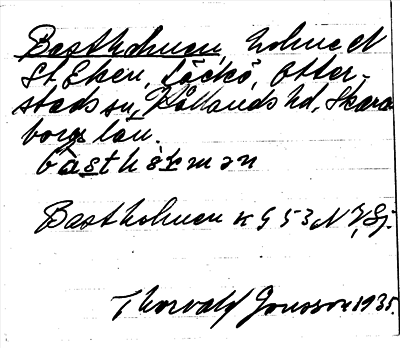 Bastholmen, holme el
St. Eken, Läckö, Otter-
stads sn, Kållands hd, Skara
borgs län.
Bastholmen k G 53 NV, Sj.
Thorvald Jonsson 1935.